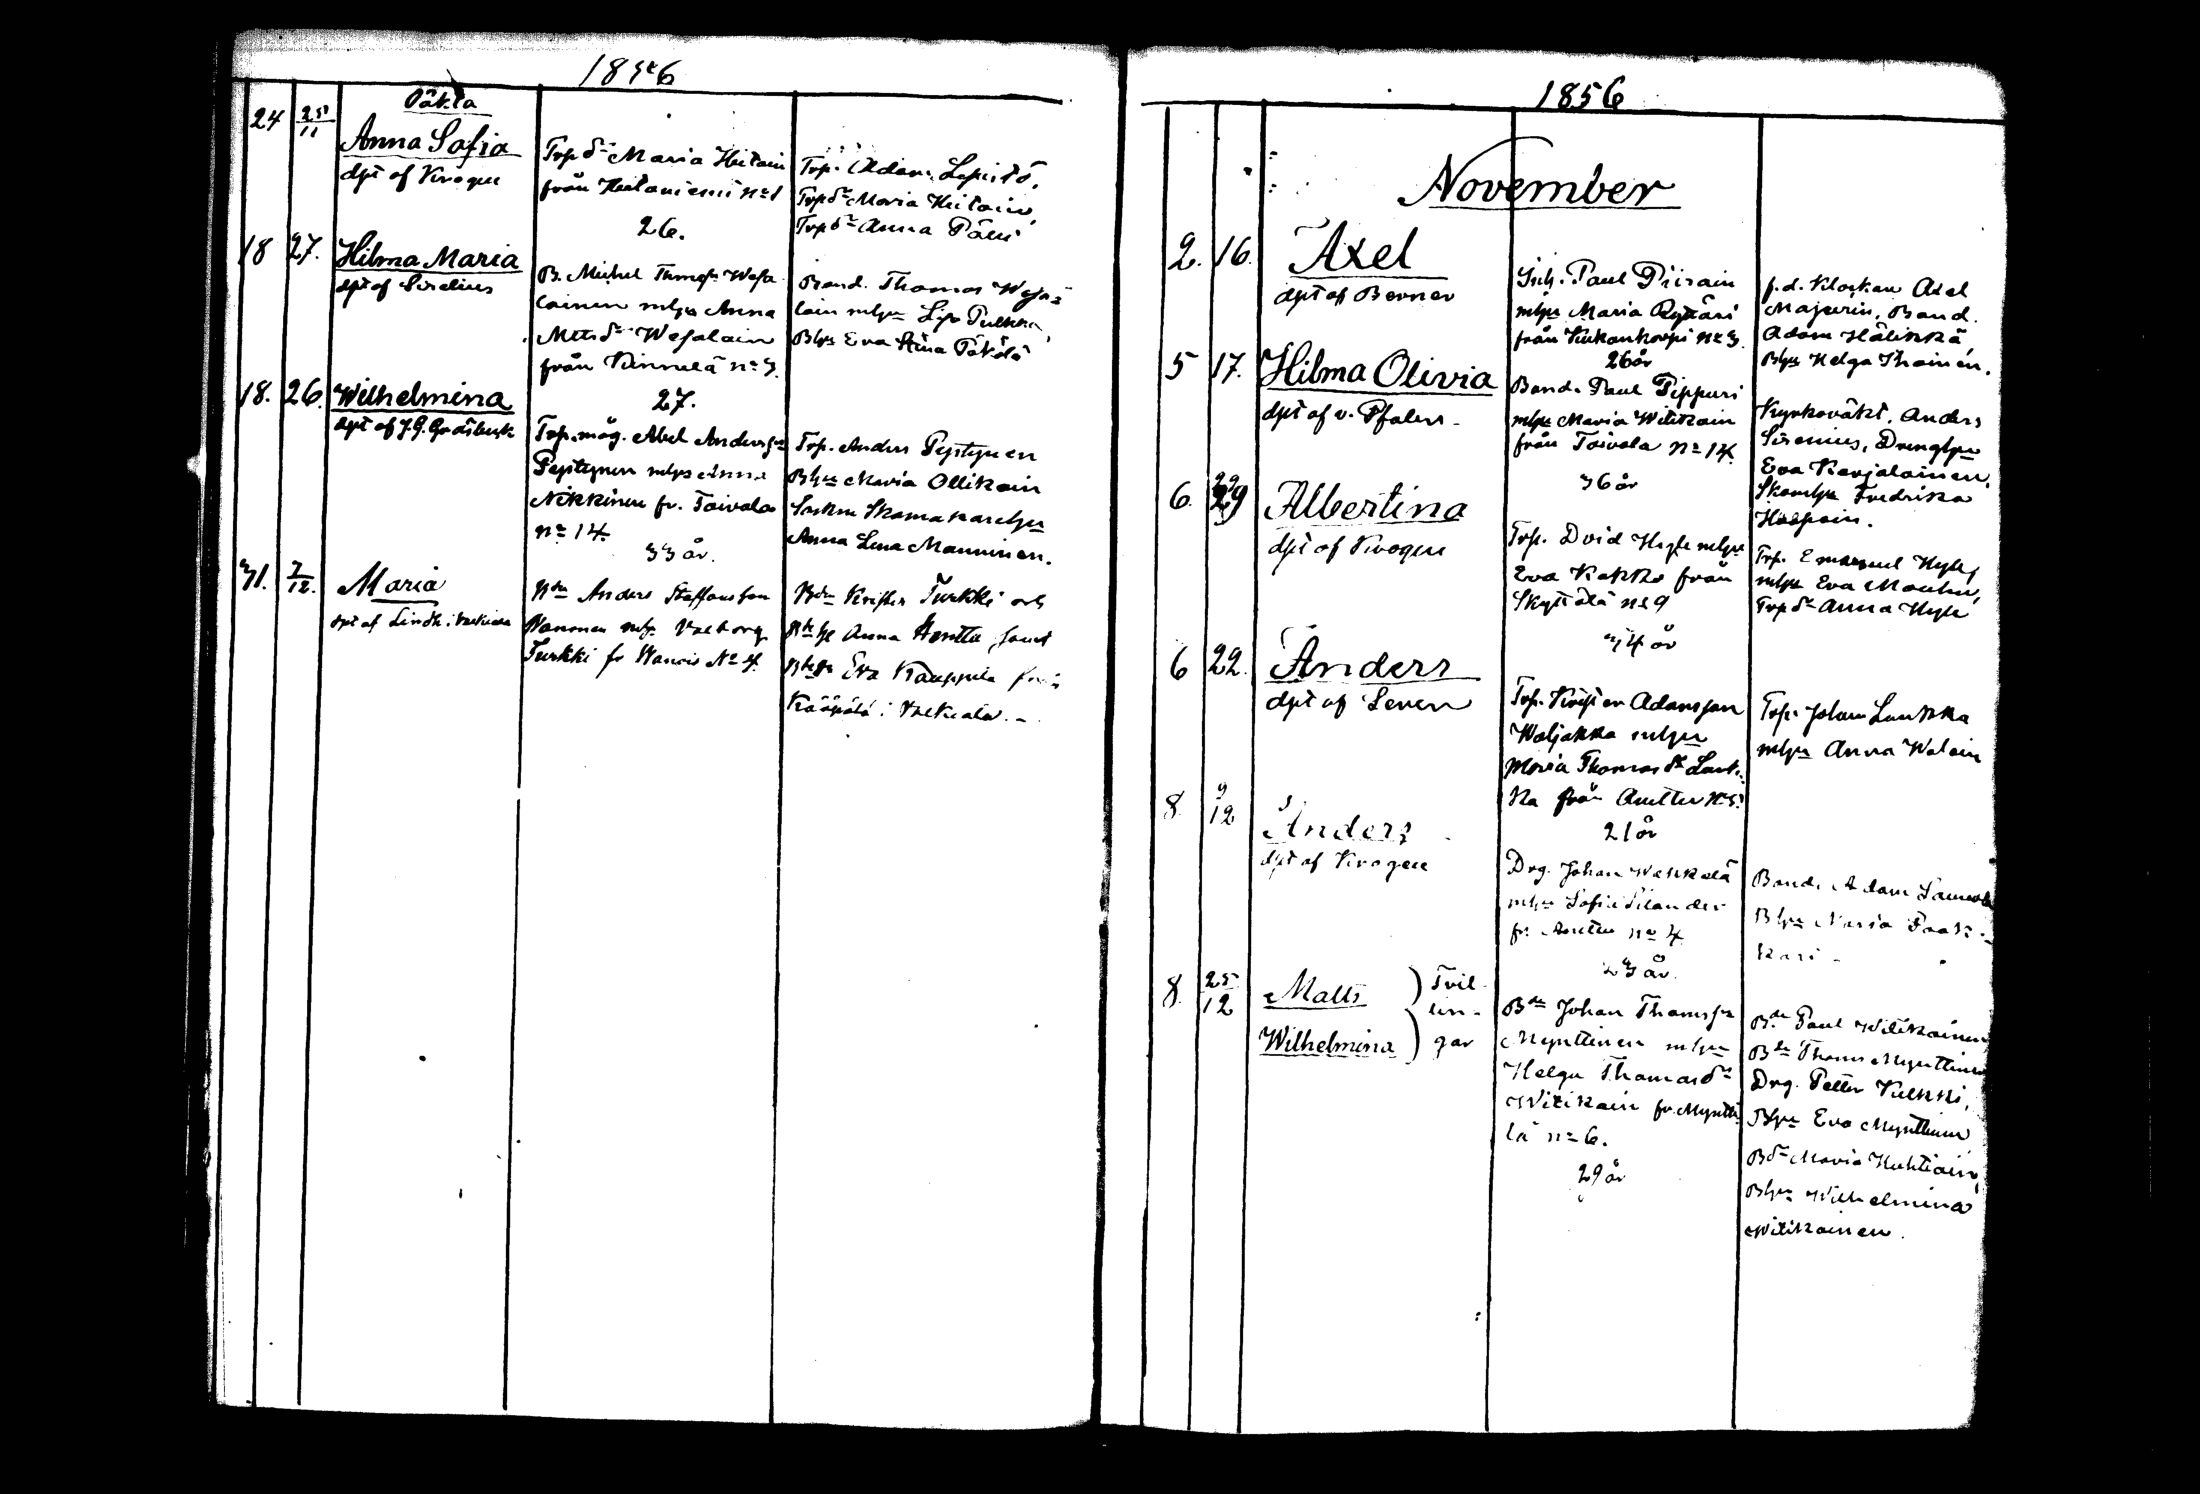 1856
24 25/11 Oäkta
Anna Sofia
dpt af Krogen
Trp dr Maria Heitain
från Heitaniemi no 1
26.
Trp. Adam Lepistö,
Trp dr Maria Heitain,
Trp dr Anna Pölli
18 27. Hilma Maria
dpt af Sirelius
B. Michel Thomass. Wesa
lainen mhu Anna
Mets dr Wesalain
från Kinnelä no 3.
27.
Bond. Thomas Wesa
lain mhu Lisa Pulkki
Bhu Eva Stina Pökölä
18. 26. Wilhelmina
dpt af J. G. Gradsberk
Trp. måg. Abel Anderss.
Pystynen mhu Anna
Nikkinen fr. Toivola
no 14.
33 år.
Trp. Anders Pystynen
Bhu Maria Ollikain
Sockne Skomakarehu
Anna Lena Manninen.
31. 7/12. Maria
dpt af Lindh i Walkiala
Bdn Anders Staffansson
Wanonen mh Walborg
Turkki fr Wanois No 4.
Bdn Krister Turkki och
Anna Anttla, samt
Eva Kauppila från
Kääpälä i Walkiala. -
1856
November
2. 16. Axel
dpt af Berner
Inh. Paul Piirain
mhu Maria Ryttäri
från Kukonkorpi no 3.
26 år
f.d. Klockan Axel
Majurin, Bond.
Adam Hälikkä
Bhu Helga Ihainen.
5 17. Hilma Olivia
dpt af v. Pfaler
Bond. Paul Pippuri
mhu Maria Witikain
från Toivola no 14.
36 år
Kyrkovakt. Anders
Sirenius, Drenghu
Eva Karjalainen,
Skomhu Fredrika
Haapain.
6. 29 Albertina
dpt af Krogen
Trp. David Hyle mhu
Eva Kokko från
Skyttälä no 9
34 år
Trp. Emanuel Hyle,
mhu Eva Mauhu,
Trp dr Anna Hyle
6 22. Anders
dpt af Leven
Trp. Krister Adamsson
Waljakka mhu
Maria Thomas dr Lauk-
ka från Anttu no 5.
21 år
Trp. Johan Laukka
mhu Anna Walain
8. 9/12 Anders
dpt af Krogen
Drg. Johan Wakkelä
mhu Sofia Silander
fr. Anttu no 4
23 år.
Bond. Adam Samola
Bhu Maria Paak-
kari -
8. 25/12 Matts
Wilhelmina
Tvil-
lin-
gar
Bdn Johan Thomss.
Mynttinen mhu
Helga Thomas dr
Witikain fr. Myntti
lä no 6.
29 år
Bdn Paul Witikainen
Bdn Thoms Mynttinen
Drg. Petter Pulkki,
Bhu Eva Mynttinen
B dr Maria Huhtiain,
Bhu Wilhelmina
Witikainen.